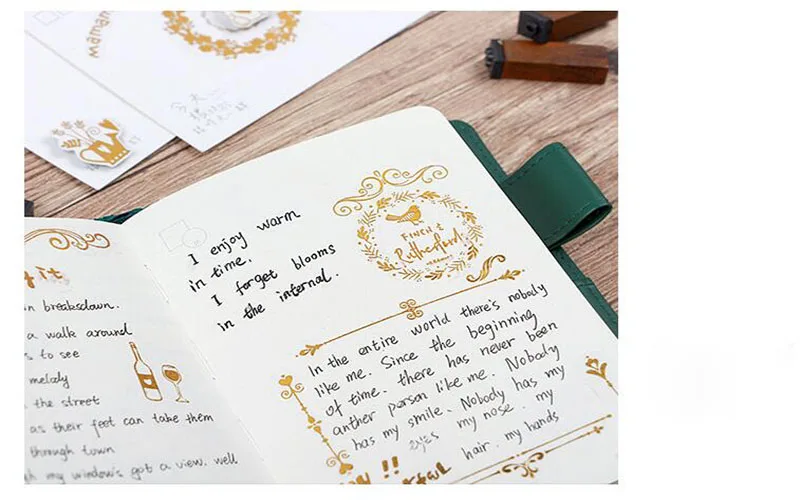 mamam
今天
it
in breaksdown.
a walk around
s to see
melody
the street
as their feet can take them
through town
my window's got a view. well
I enjoy warm
in time.
I forget blooms
in the internal.
FINCH &
Rutherford
In the entire world there's nobody
like me. Since the beginning
of time. there has never been
anther person like me. Nobody
has my smile. Nobody has my
eyes my nose. my
hair. my hands
!!